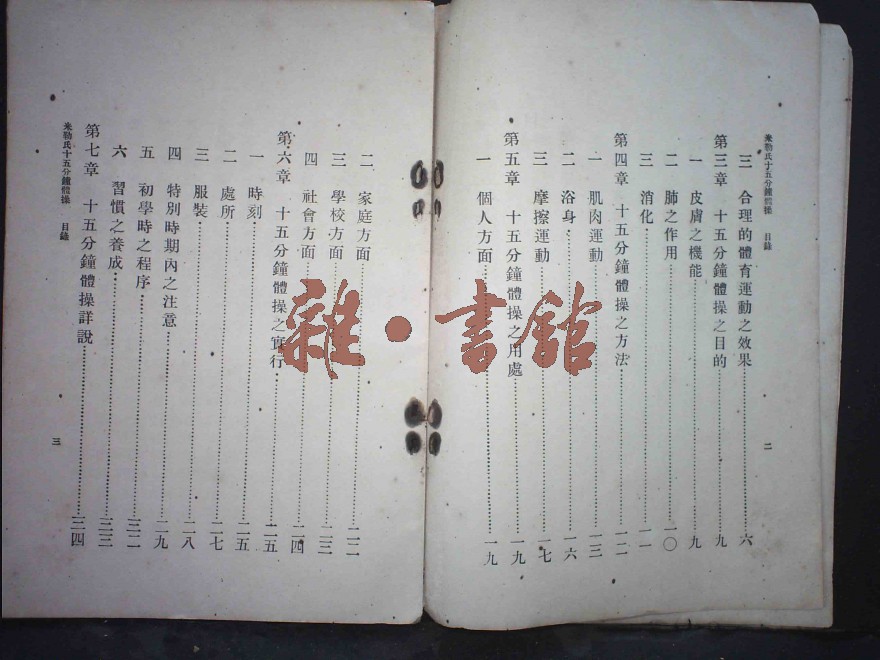 米勒氏十五分鐘體操 目錄
三 合理的體育運動之效果 六
第三章 十五分鐘體操之目的 九
一 皮膚之機能 九
二 肺之作用 一〇
三 消化 一一
第四章 十五分鐘體操之方法 一二
一 肌肉運動 一三
二 浴身 一六
三 摩擦運動 一七
第五章 十五分鐘體操之用處 一九
一 個人方面 一九
二
二 家庭方面 二二
三 學校方面 二三
四 社會方面 二四
第六章 十五分鐘體操之實行 二五
一 時刻 二五
二 處所 二七
三 服裝 二八
四 特別時期內之注意 二九
五 初學時之程序 三二
六 習慣之養成 三三
第七章 十五分鐘體操詳說 三四
米勒氏十五分鐘體操 目錄
三
雜·書館